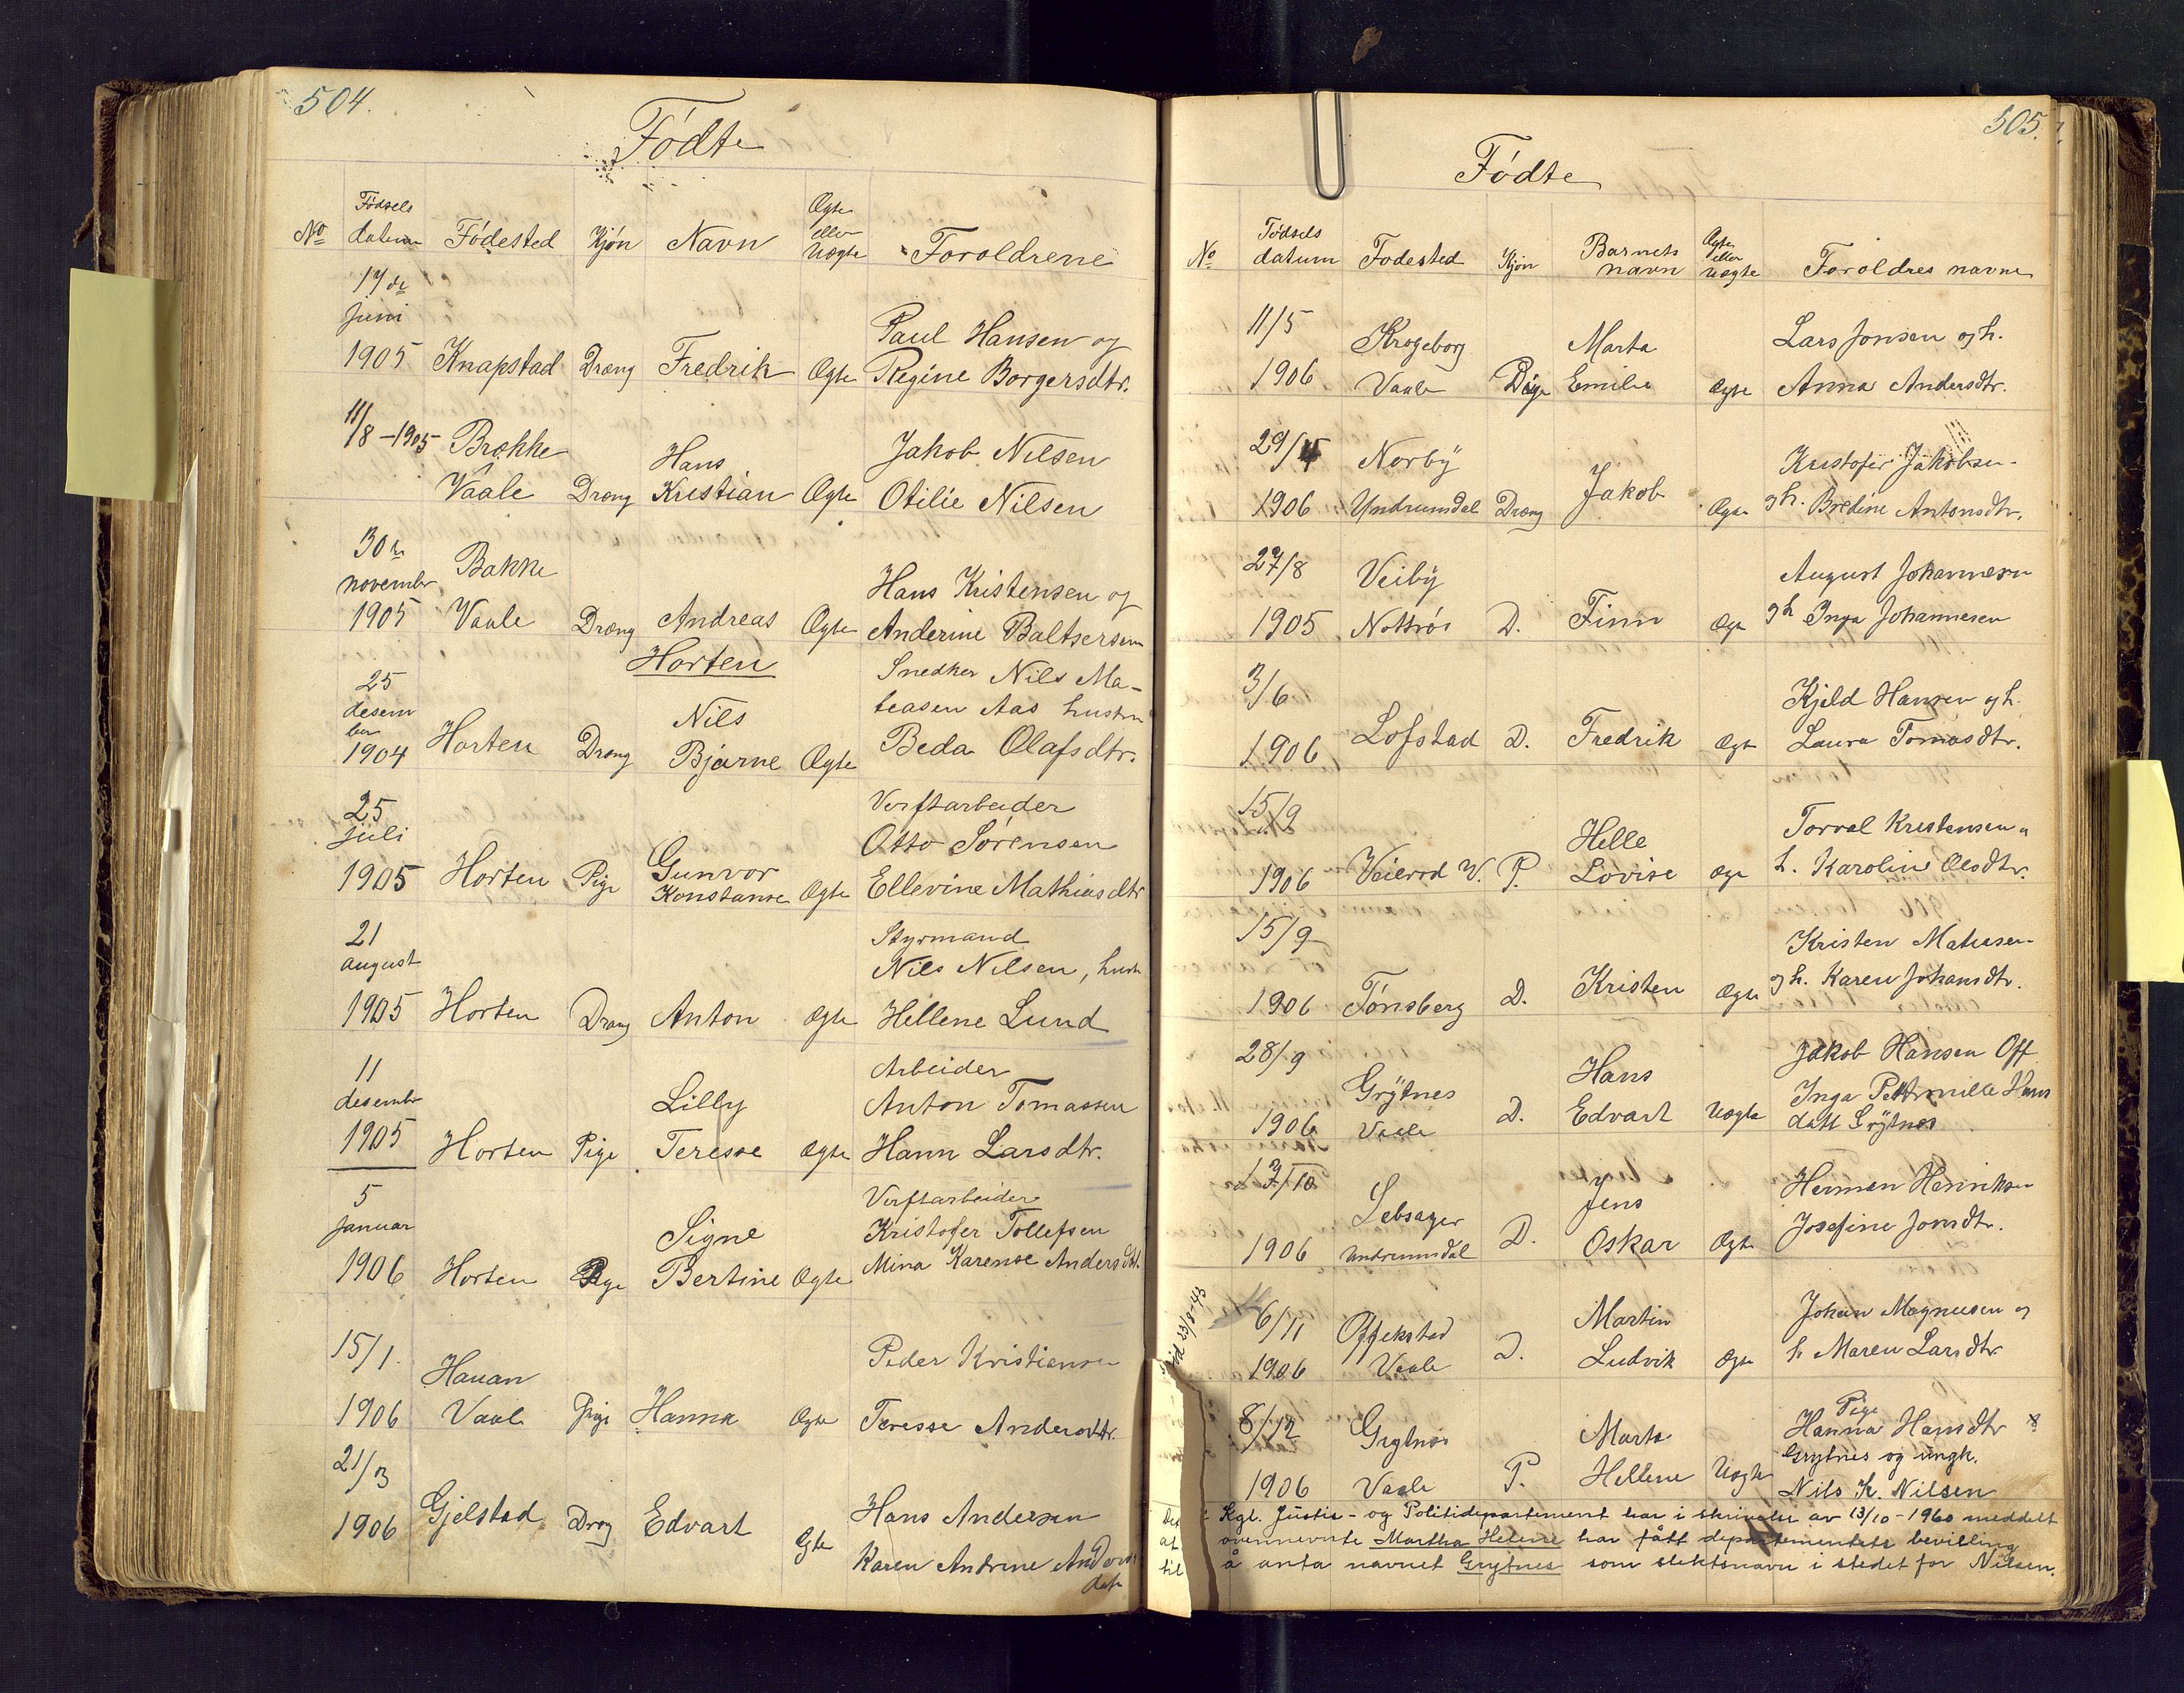 504.
Fødte
No Fødsels datum Fødested Kjøn Navn Ægte eller Uægte Foroldrene
17de
juni Paul Hansen og
1905 Knapstad Dræng Fredrik Ægte Regine Borgersdtr.
11/8-1905 Brække Hans Jakob Nilsen
Vaale Dræng Kristian Ægte Otilie Nilsen
30te Bakke
november Hans Kristensen og
1905 Vaale Dræng Andreas Ægte Anderine Baltsersen
Horten
25 Snedker Nils Ma-
desem Nils teasen Aas hustru
ber
1904 Horten Dræng Bjarne Ægte Beda Olafsdtr.
25 Verftarbeider
juli Gunvor Otto Sørensen
1905 Horten Pige Konstanse Ægte Ellevine Mathiasdtr
21 Styrmand
august Nils Nilsen, hustr
1905 Horten Dræng Anton Ægte Hellene Lund
11 Arbeider
desember Lilly Anton Tomassen
1905 Horten Pige Teresse Ægte Hann Larsdtr.
5 Verftarbeider
januar Signe Kristofer Tollefsen
1906 Horten Pige Bertine Ægte Mina Karense Andersdtt.
15/1. Hauan Peder Kristiansen
1906 Vaale Pige Hanna Ægte Teresse Andersdtr.
21/3 Hans Andersen
1906 Gjelstad Dræng Edvart Ægte Karen Andrine Anders
datr
505.
Fødte
No Fødsels datum Fodested Kjøn Barnets navn Ægte eller Uægte Foroldres navne
11/5 Krogeborg Marta Lars Jonsen og h.
1906 Vaale Pige Emilie Ægte Anna Andersdtr.
29/4 Norbÿ Kristofer Jakobsen
1906 Undrumsdal Dræng Jakob Ægte og h. Bredine Antonsdtr.
27/8 Veibÿ August Johannesen
1905 Nøtterøi D. Finn Ægte og h Inga Johannesen
3/6 Kjeld Hansen og h.
1906 Lofstad D. Fredrik Ægte Laura Tomasdtr.
15/9 Helle Torval Kristensen
1906 Veierød V. P. Lovise Ægte h. Karoline Olsdtr.
15/9 Kristen Matiasen
1906 Tønsberg D. Kristen Ægte og h. Karen Johansdtr.
28/9 Grÿtnes Hans Jakob Hansen Off
1906 Vaale D. Edvart Uægte Inga Petternille Hans
datt Grÿtnes
17/10 Sebsager Jens Herman Henriksen
1906 Undrumsdal D. Oskar Ægte Josefine Jonsdtr.
23/8-43
6/11 Offekstad Martin Johan Magnusen og
1906 Vaale D. Ludvik Ægte h Maren Larsdtr
8/12 Grytnes Marta Pige
Hanna Hansdtr
Grytnes og ungk.
1906 Vaale P. Hellene Uægte Nils K. Nilsen
Det Kgl. Justis- og Politidepartement har i skrivelse av 13/10-1960 meddelt
at ovennevnte Martha Helene har fått departementets bevilling
til å anta navnet Grytnes som slektsnavn i stedet for Nilsen.